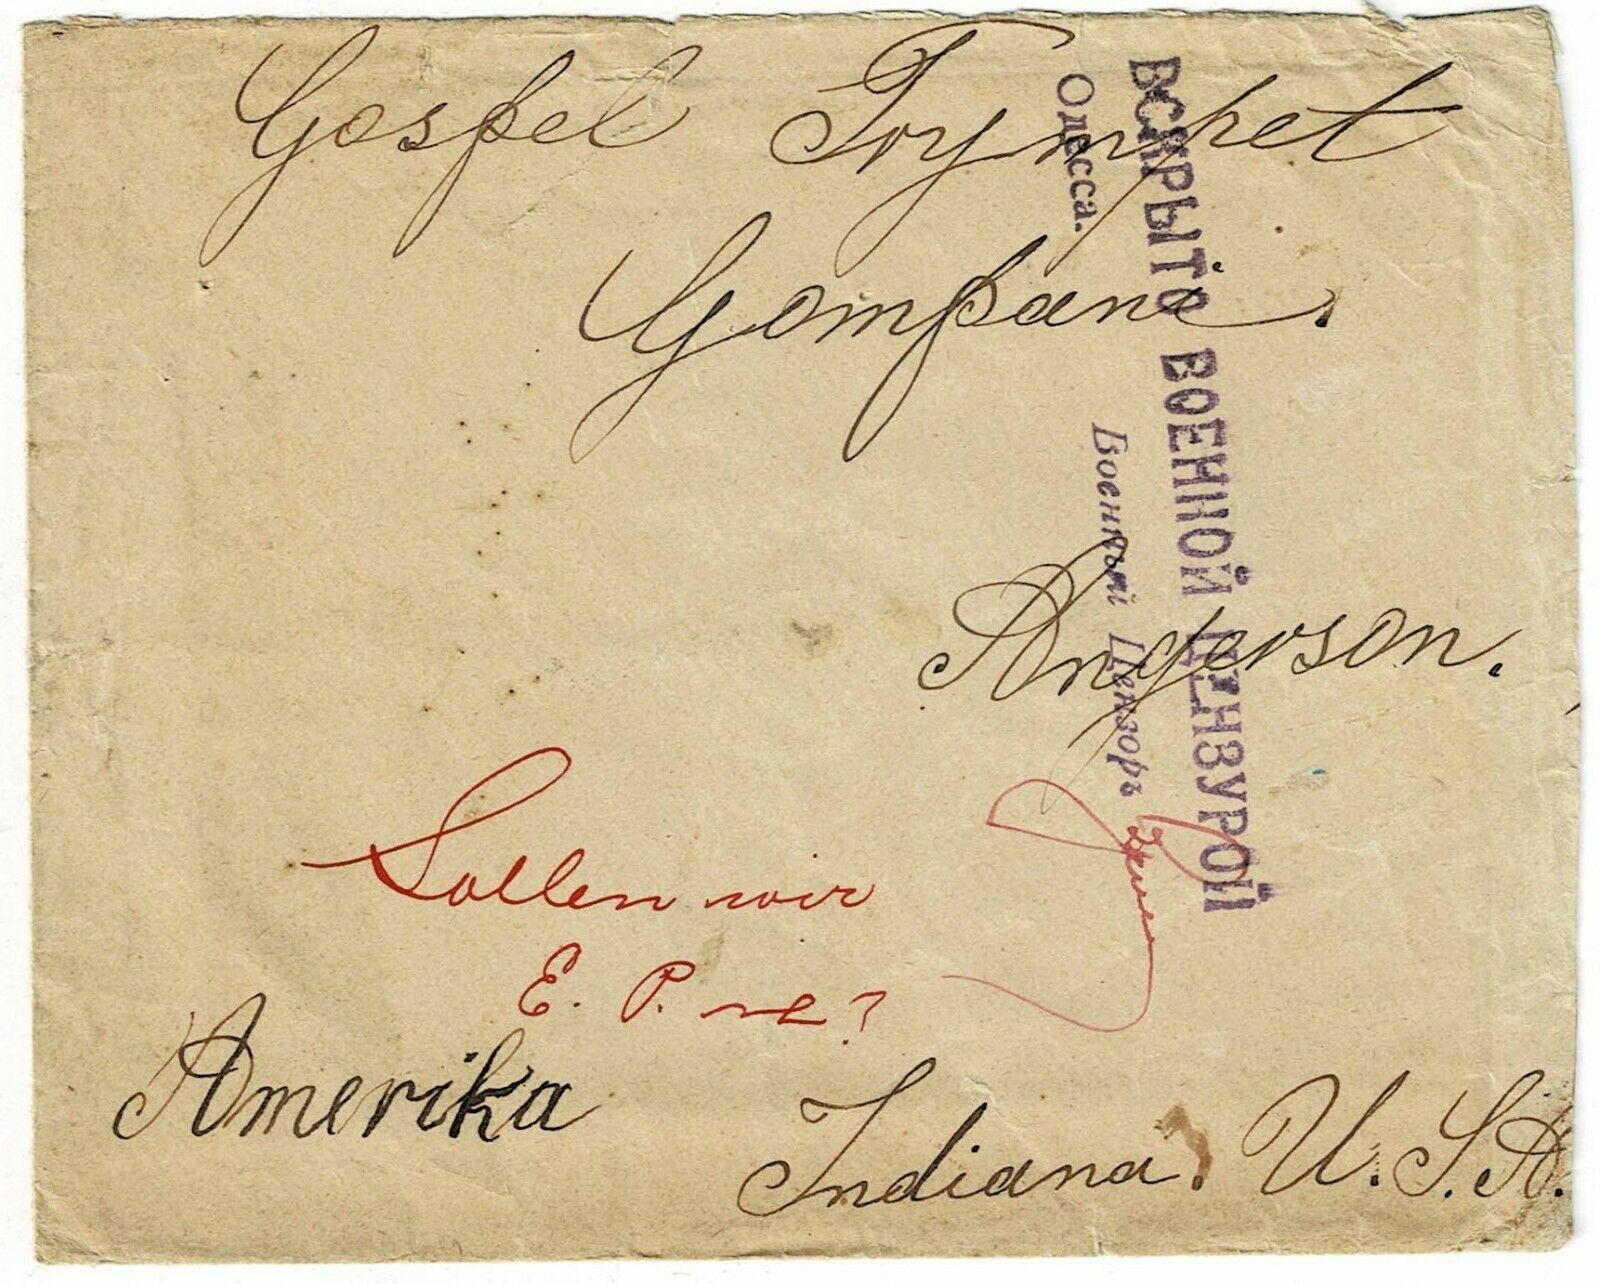 Gospel Trympet
Gompani.
Angerson.
ВСКРЫТО ВОЕННОЙ ЦЕНЗУРОЙ
Одесса.
Военный Цензоръ
Sollen wir
E. P.
Amerika
Indiana. U. S. A.